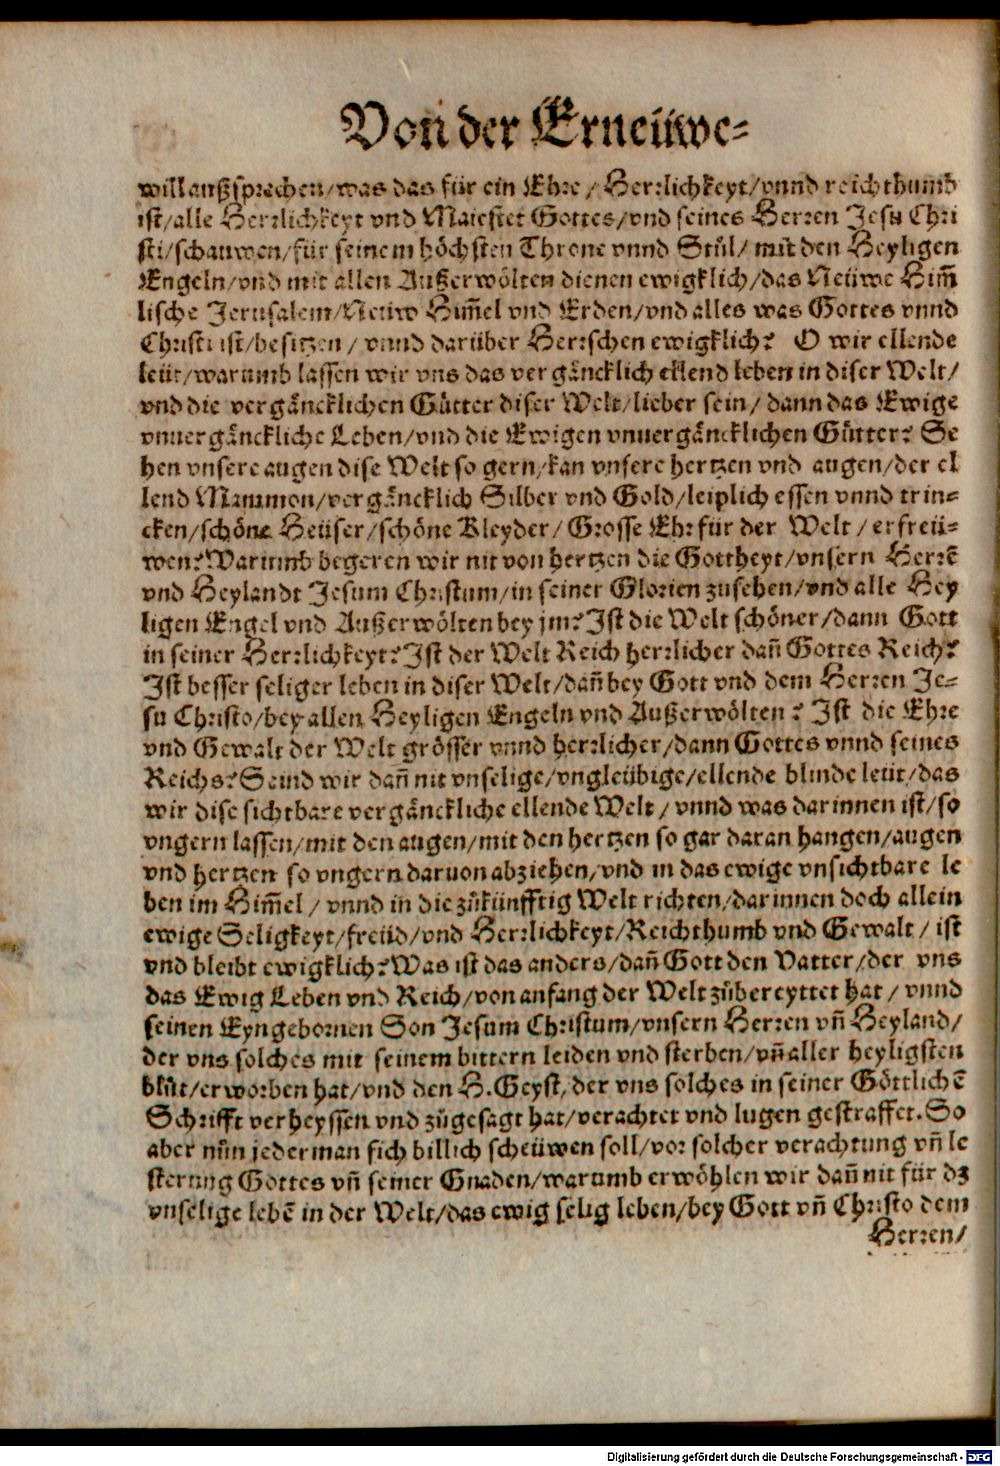 Von der Erneüwe-
will außsprechen/was das für ein Ehre/Herrlichkeyt/vnnd reichthumb
ist/alle Herrlichkeyt vnd Maiestet Gottes/vnd seines Herren Jesu Chri
sti/schauwen/für seinem höchsten Throne vnnd Stůl/mit den Heyligen
Engeln/vnd mit allen Außerwölten dienen ewigklich/das Neüwe Him̃
lische Jerusalem/Neüw Him̃el vnd Erden/vnd alles was Gottes vnnd
Christi ist/besitzen/vnnd darüber Herrschen ewigklich? O wir ellende
leüt/warumb lassen wir vns das vergäncklich ellend leben in diser Welt/
vnd die vergäncklichen Gütter diser Welt/lieber sein/dann das Ewige
vnuergänckliche Leben/vnd die Ewigen vnuergäncklichen Gütter? Se
hen vnsere augen dise Welt so gern/kan vnsere hertzen vnd augen/der el
lend Mammon/vergäncklich Silber vnd Gold/leiplich essen vnnd trin-
cken/schöne Heüser/schöne Kleyder/Grosse Ehr für der Welt/erfreü-
wen? Warumb begeren wir nit von hertzen die Gottheyt/vnsern Herrē
vnd Heylandt Jesum Christum/in seiner Glorien zusehen/vnd alle Hey
ligen Engel vnd Außerwölten bey jm? Ist die Welt schöner/dann Gott
in seiner Herrlichkeyt? Ist der Welt Reich herrlicher dañ Gottes Reich?
Ist besser seliger leben in diser Welt/dañ bey Gott vnd dem Herren Je-
su Christo/bey allen Heyligen Engeln vnd Außerwölten? Ist die Ehre
vnd Gewalt der Welt grösser vnnd herrlicher/dann Gottes vnnd seines
Reichs? Seind wir dañ nit vnselige/vngleübige/ellende blinde leüt/das
wir dise sichtbare vergänckliche ellende Welt/vnnd was darinnen ist/so
vngern lassen/mit den augen/mit den hertzen so gar daran hangen/augen
vnd hertzen so vngern daruon abziehen/vnd in das ewige vnsichtbare le
ben im Him̃el/vnnd in die zůkünfftig Welt richten/darinnen doch allein
ewige Seligkeyt/freüd/vnd Herrlichkeyt/Reichthumb vnd Gewalt/ist
vnd bleibt ewigklich? Was ist das anders/dañ Gott den Vatter/der vns
das Ewig Leben vnd Reich/von anfang der Welt zůbereyttet hat/vnnd
seinen Eyngebornen Son Jesum Christum/vnsern Herren vñ Heyland/
der vns solches mit seinem bittern leiden vnd sterben/vñ aller heyligsten
blůt/erworben hat/vnd den H. Geyst/der vns solches in seiner Göttlichē
Schrifft verheyssen vnd zůgesagt hat/verachtet vnd lugen gestraffet. So
aber nůn jederman sich billich scheüwen soll/vor solcher verachtung vñ le
sterung Gottes vñ seiner Gnaden/warumb erwöhlen wir dañ nit für dz
vnselige lebē in der Welt/das ewig selig leben/bey Gott vñ Christo dem
Herren/
Digitalisierung gefördert durch die Deutsche Forschungsgemeinschaft - DFG